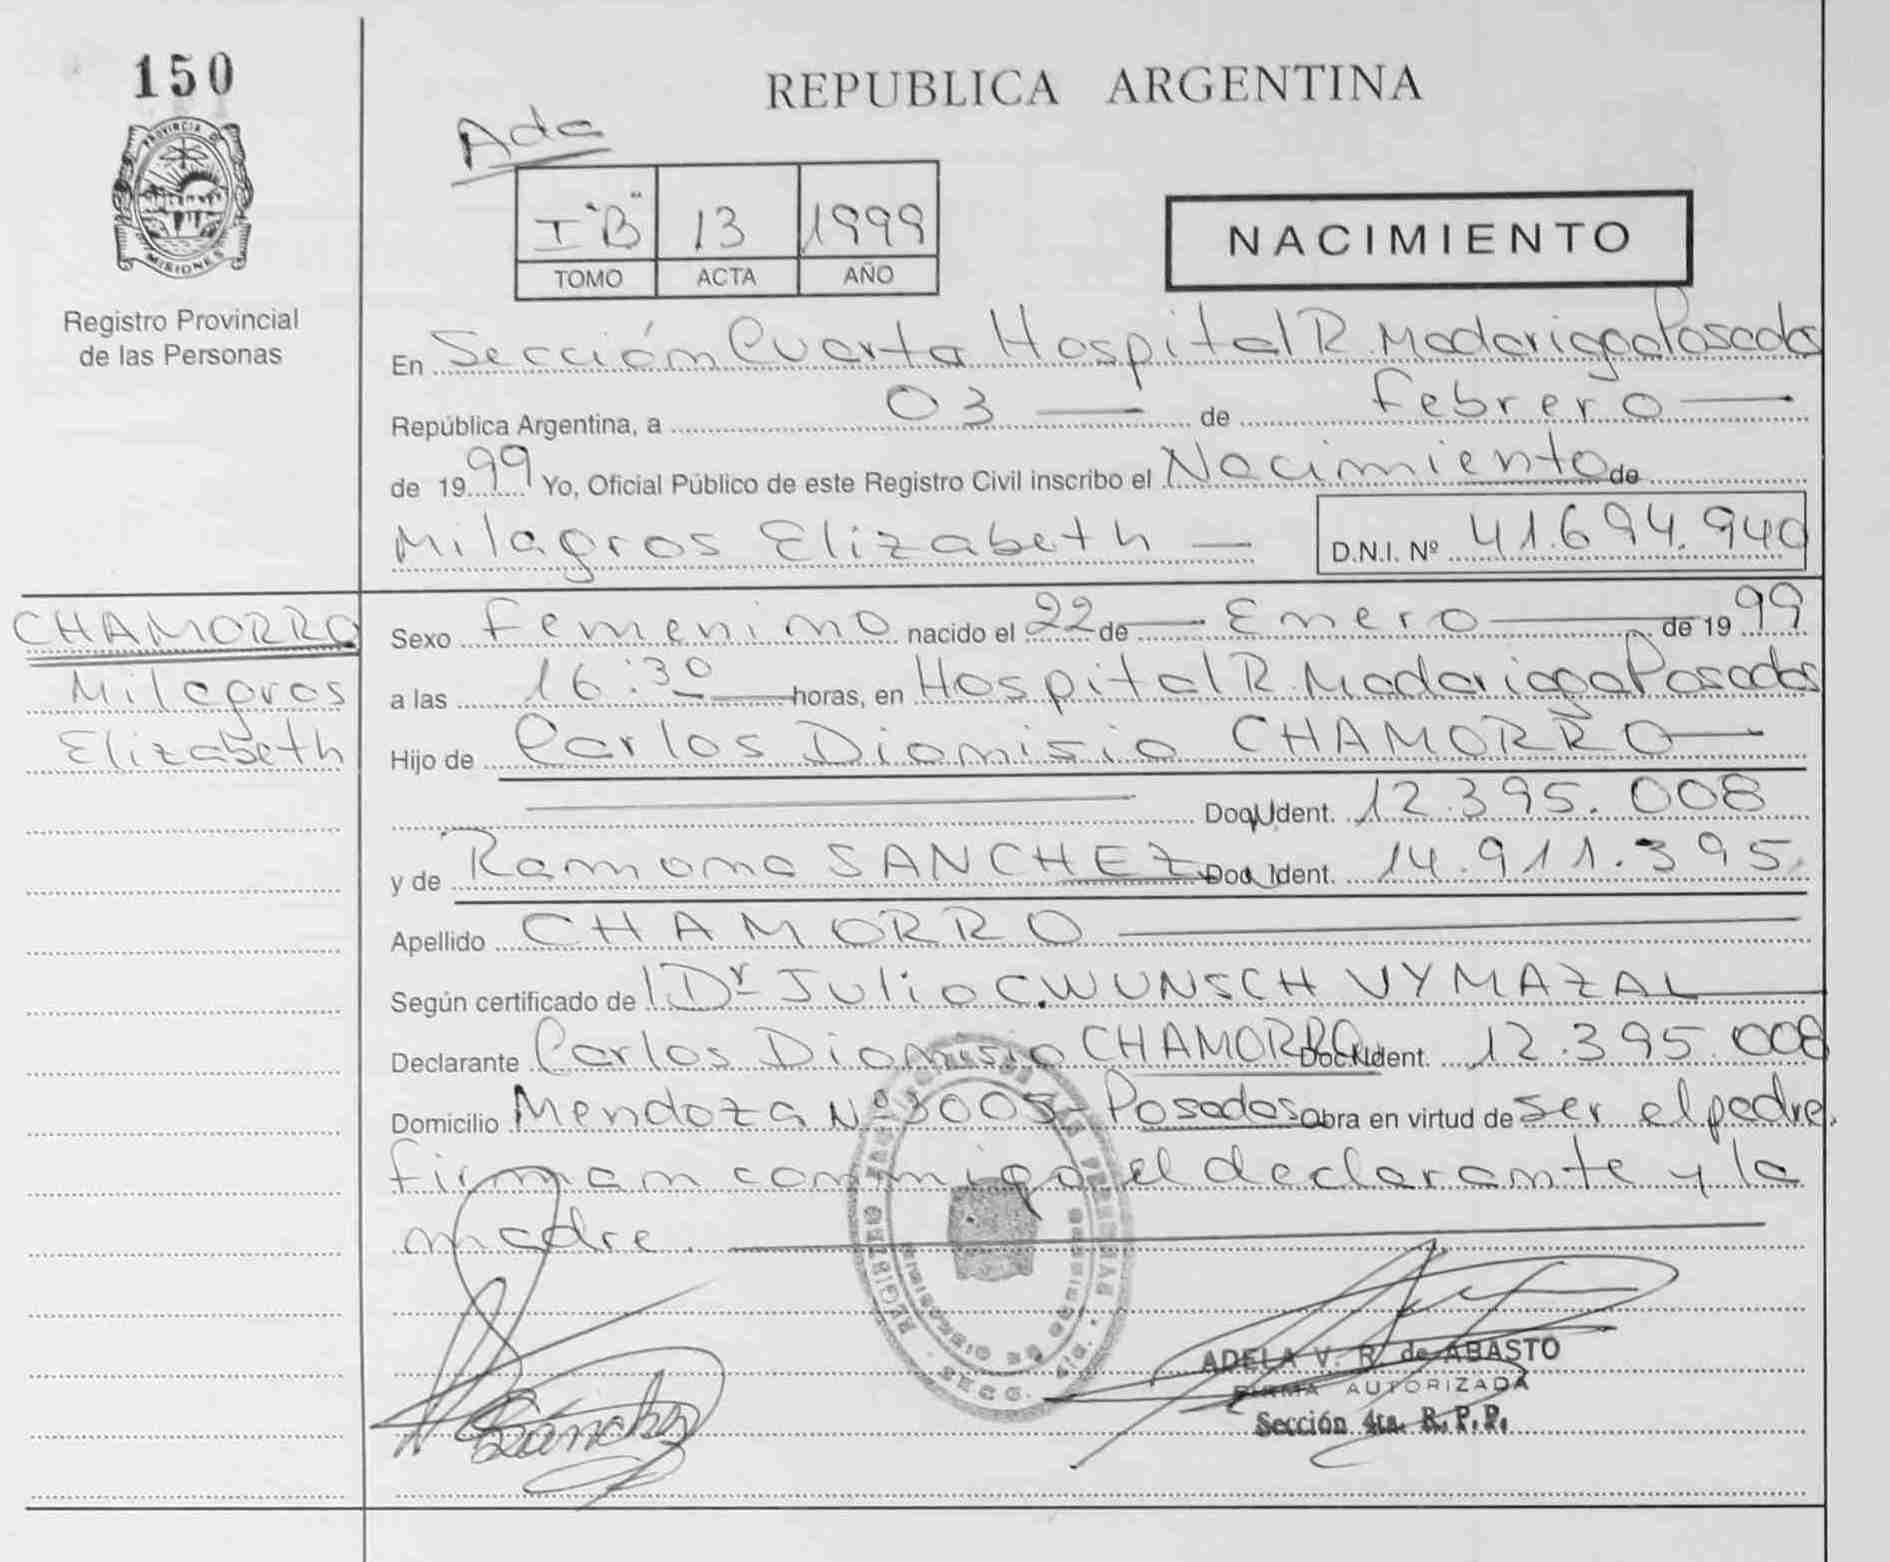 150
REPUBLICA ARGENTINA
PROVINCIA D
MISIONES
Registro Provincial
de las Personas
I "B" 13 1999
TOMO ACTA AÑO
NACIMIENTO
En Sección Cuarta Hospital R. Madariaga Posadas
República Argentina, a 03 — de Febrero —
de 1999 Yo, Oficial Público de este Registro Civil inscribo el Nacimiento de
Milagros Elizabeth — D.N.I. Nº 41.694.940
CHAMORRO
Milagros
Elizabeth
Sexo Femenino nacido el 22 de — Enero — de 1999
a las 16:30 — horas, en Hospital R. Madariaga Posadas
Hijo de Carlos Dionisio CHAMORRO —
Doc. Ident. 12.395.008
y de Ramona SANCHEZ Doc. Ident. 14.911.395
Apellido CHAMORRO —
Según certificado de Dr Julio C. WUNSCH VYMAZAL
Declarante Carlos Dionisio CHAMORRO Doc. Ident. 12.395.008
Domicilio Mendoza Nº 3005 - Posadas Obra en virtud de ser el padre.
firman conmigo el declarante y la
madre.
Sánchez
ADELA V. R. de ABASTO
FIRMA AUTORIZADA
Sección 4ta. R. P. P.